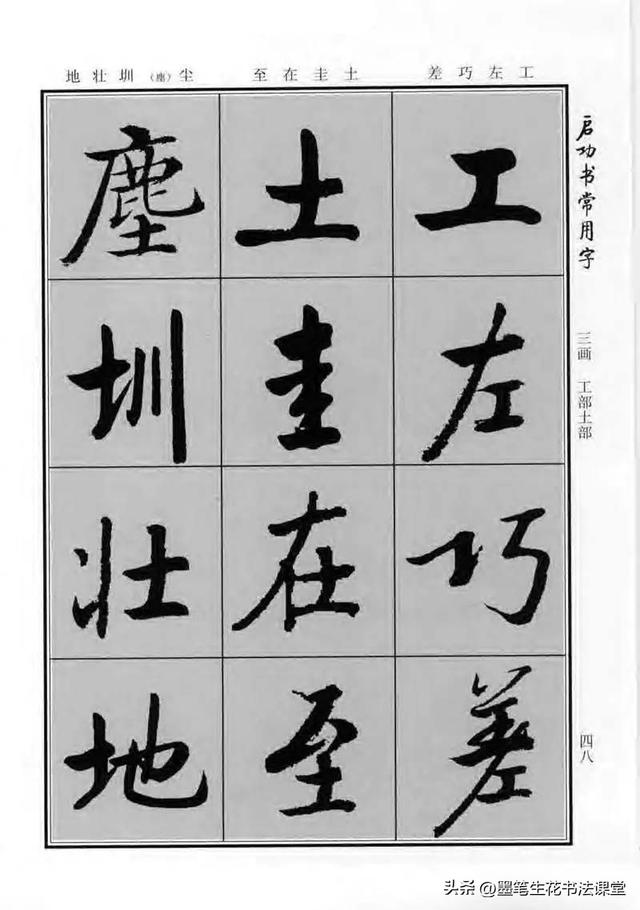 启功书常用字
三画 工部土部
四八
工左巧差
土圭在至
尘（塵）圳壮地
工
左
巧
差
土
圭
在
至
塵
圳
壮
地
头条 @墨笔生花书法课堂